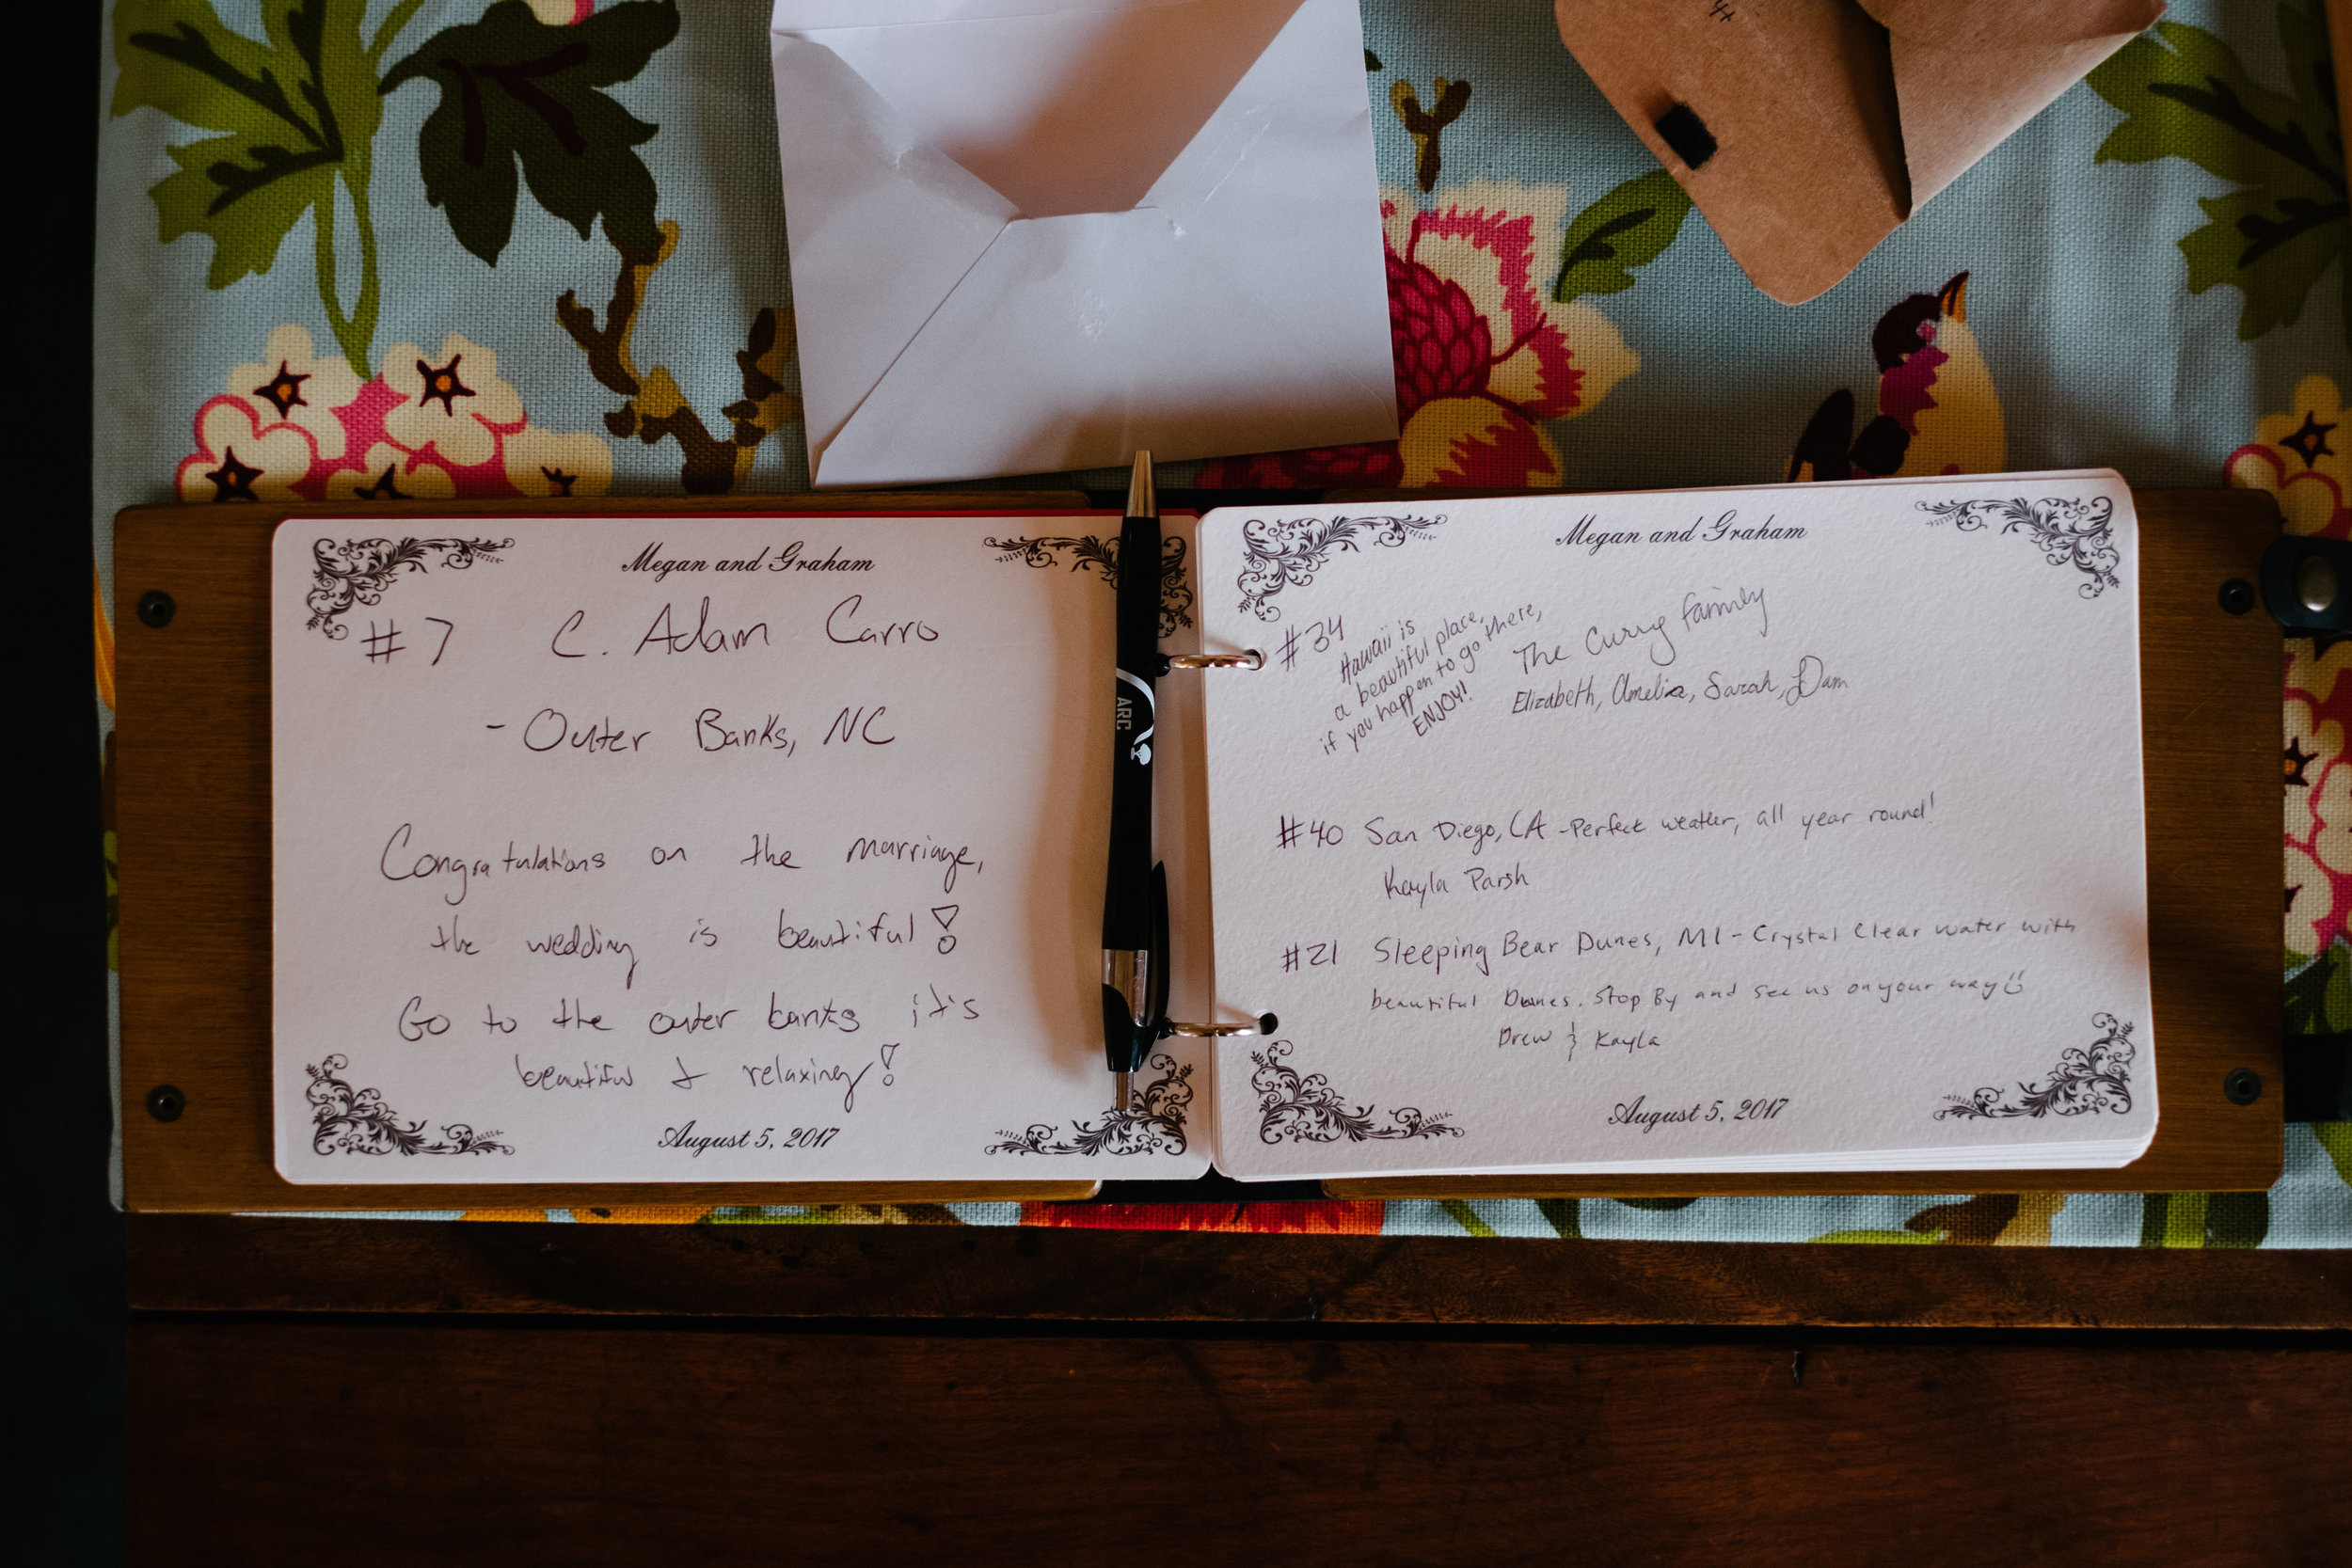 Megan and Graham
#7 C. Adam Carro
- Outer Banks, NC
Congratulations on the marriage,
the wedding is beautiful!
Go to the outer banks it's
beautiful & relaxing!
August 5, 2017
ARC
Megan and Graham
#34
Hawaii is
a beautiful place,
if you happen to go there,
ENJOY!
The Curry Family
Elizabeth, Amelia, Sarah, Dam
#40 San Diego, CA - Perfect weather, all year round!
Kayla Parsh
#21 Sleeping Bear Dunes, MI - Crystal Clear water with
beautiful Dunes. Stop By and see us on your way
Drew & Kayla
August 5, 2017